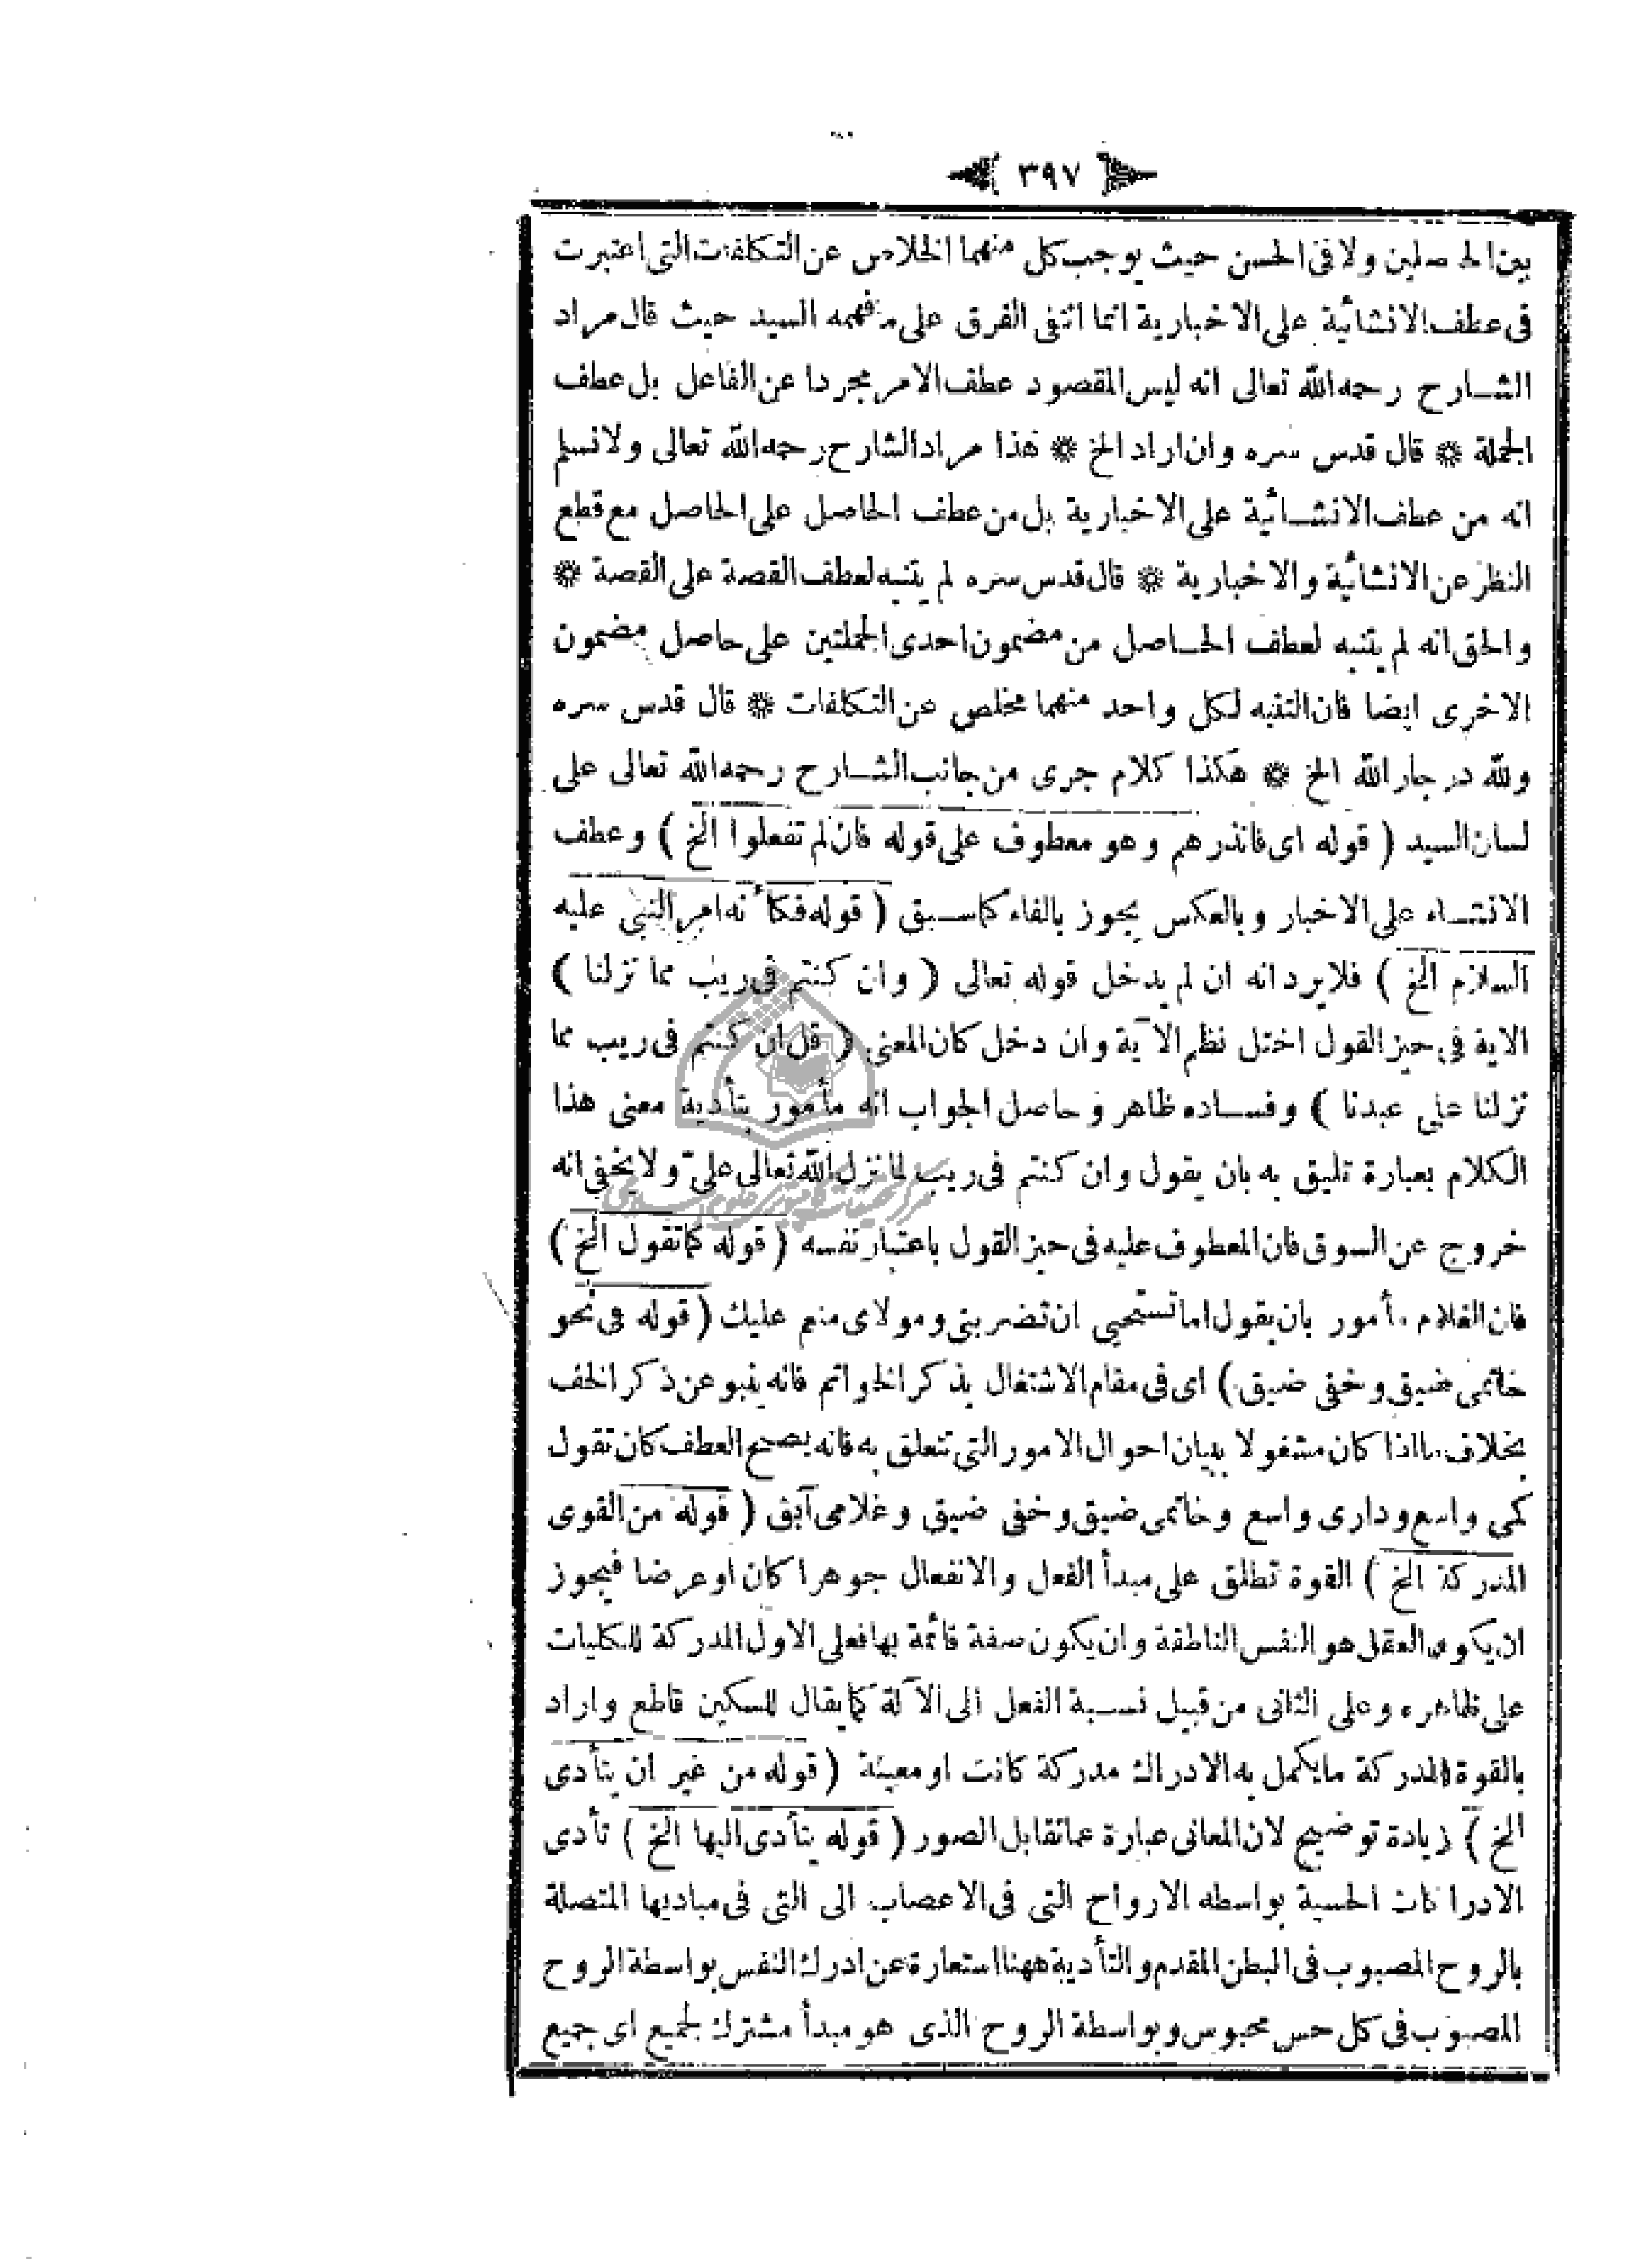 ﴿ ٣٩٧ ﴾
بين الحاصلين ولا فى الحسن حيث يوجب كل منهما الخلاص عن التكلفات التى اعتبرت
فى عطف الانشائية على الاخبارية انما انتفى الفرق على ما فهمه السيد حيث قال مراد
الشارح رحمه الله تعالى انه ليس المقصود عطف الامر مجردا عن الفاعل بل عطف
الجملة * قال قدس سره وان اراد الخ * هذا مراد الشارح رحمه الله تعالى ولا نسلم
انه من عطف الانشائية على الاخبارية بل من عطف الحاصل على الحاصل مع قطع
النظر عن الانشائية والاخبارية * قال قدس سره لم يتنبه لعطف القصة على القصة *
والحق انه لم يتنبه لعطف الحاصل من مضمون احدى الجملتين على حاصل مضمون
الاخرى ايضا فان التنبه لكل واحد منهما مخلص عن التكلفات * قال قدس سره
ولله در جار الله الخ * هكذا كلام جرى من جانب الشارح رحمه الله تعالى على
لسان السيد ( قوله اى فانذرهم وهو معطوف على قوله فان لم تفعلوا الخ ) وعطف
الانشاء على الاخبار وبالعكس يجوز بالفاء كما سبق ( قوله فكأنه امر النبى عليه
السلام الخ ) فلا يرد انه ان لم يدخل قوله تعالى ( وان كنتم فى ريب مما نزلنا )
الاية فى حيز القول اختل نظم الآية وان دخل كان المعنى ( قل ان كنتم فى ريب مما
نزلنا على عبدنا ) وفساده ظاهر وحاصل الجواب انه مأمور بتأدية معنى هذا
الكلام بعبارة تليق به بان يقول وان كنتم فى ريب لما نزل الله تعالى علىّ ولا يخفى انه
خروج عن السوق فان المعطوف عليه فى حيز القول باعتبار نفسه ( قوله كما تقول الخ )
فان الغلام مأمور بان يقول اما تستحيى ان تضربنى ومولاى منعم عليك ( قوله فى نحو
خاتمى ضيق وخفى ضيق ) اى فى مقام الاشتغال بذكر الخواتم فانه ينبو عن ذكر الخف
بخلاف ما اذا كان مشغولا ببيان احوال الامور التى تتعلق به فانه يصح العطف كان تقول
كمى واسع ودارى واسع وخاتمى ضيق وخفى ضيق وغلامى آبق ( قوله من القوى
المدركة الخ ) القوة تطلق على مبدأ الفعل والانفعال جوهرا كان او عرضا فيجوز
ان يكون العقل هو النفس الناطقة وان يكون صفة قائمة بها فعلى الاول المدركة للكليات
على ظاهره وعلى الثانى من قبيل نسبة الفعل الى الآلة كما يقال للسكين قاطع واراد
بالقوة المدركة ما يكمل به الادراك مدركة كانت او معينة ( قوله من غير ان يتأدى
الخ ) زيادة توضيح لان المعانى عبارة عما تقابل الصور ( قوله يتأدى اليها الخ ) تأدى
الادراكات الحسية بواسطه الارواح التى فى الاعصاب الى التى فى مباديها المتصلة
بالروح المصبوب فى البطن المقدم والتأدية ههنا استعارة عن ادرك النفس بواسطة الروح
المصبوب فى كل حس محبوس وبواسطة الروح الذى هو مبدأ مشترك لجميع اى جميع